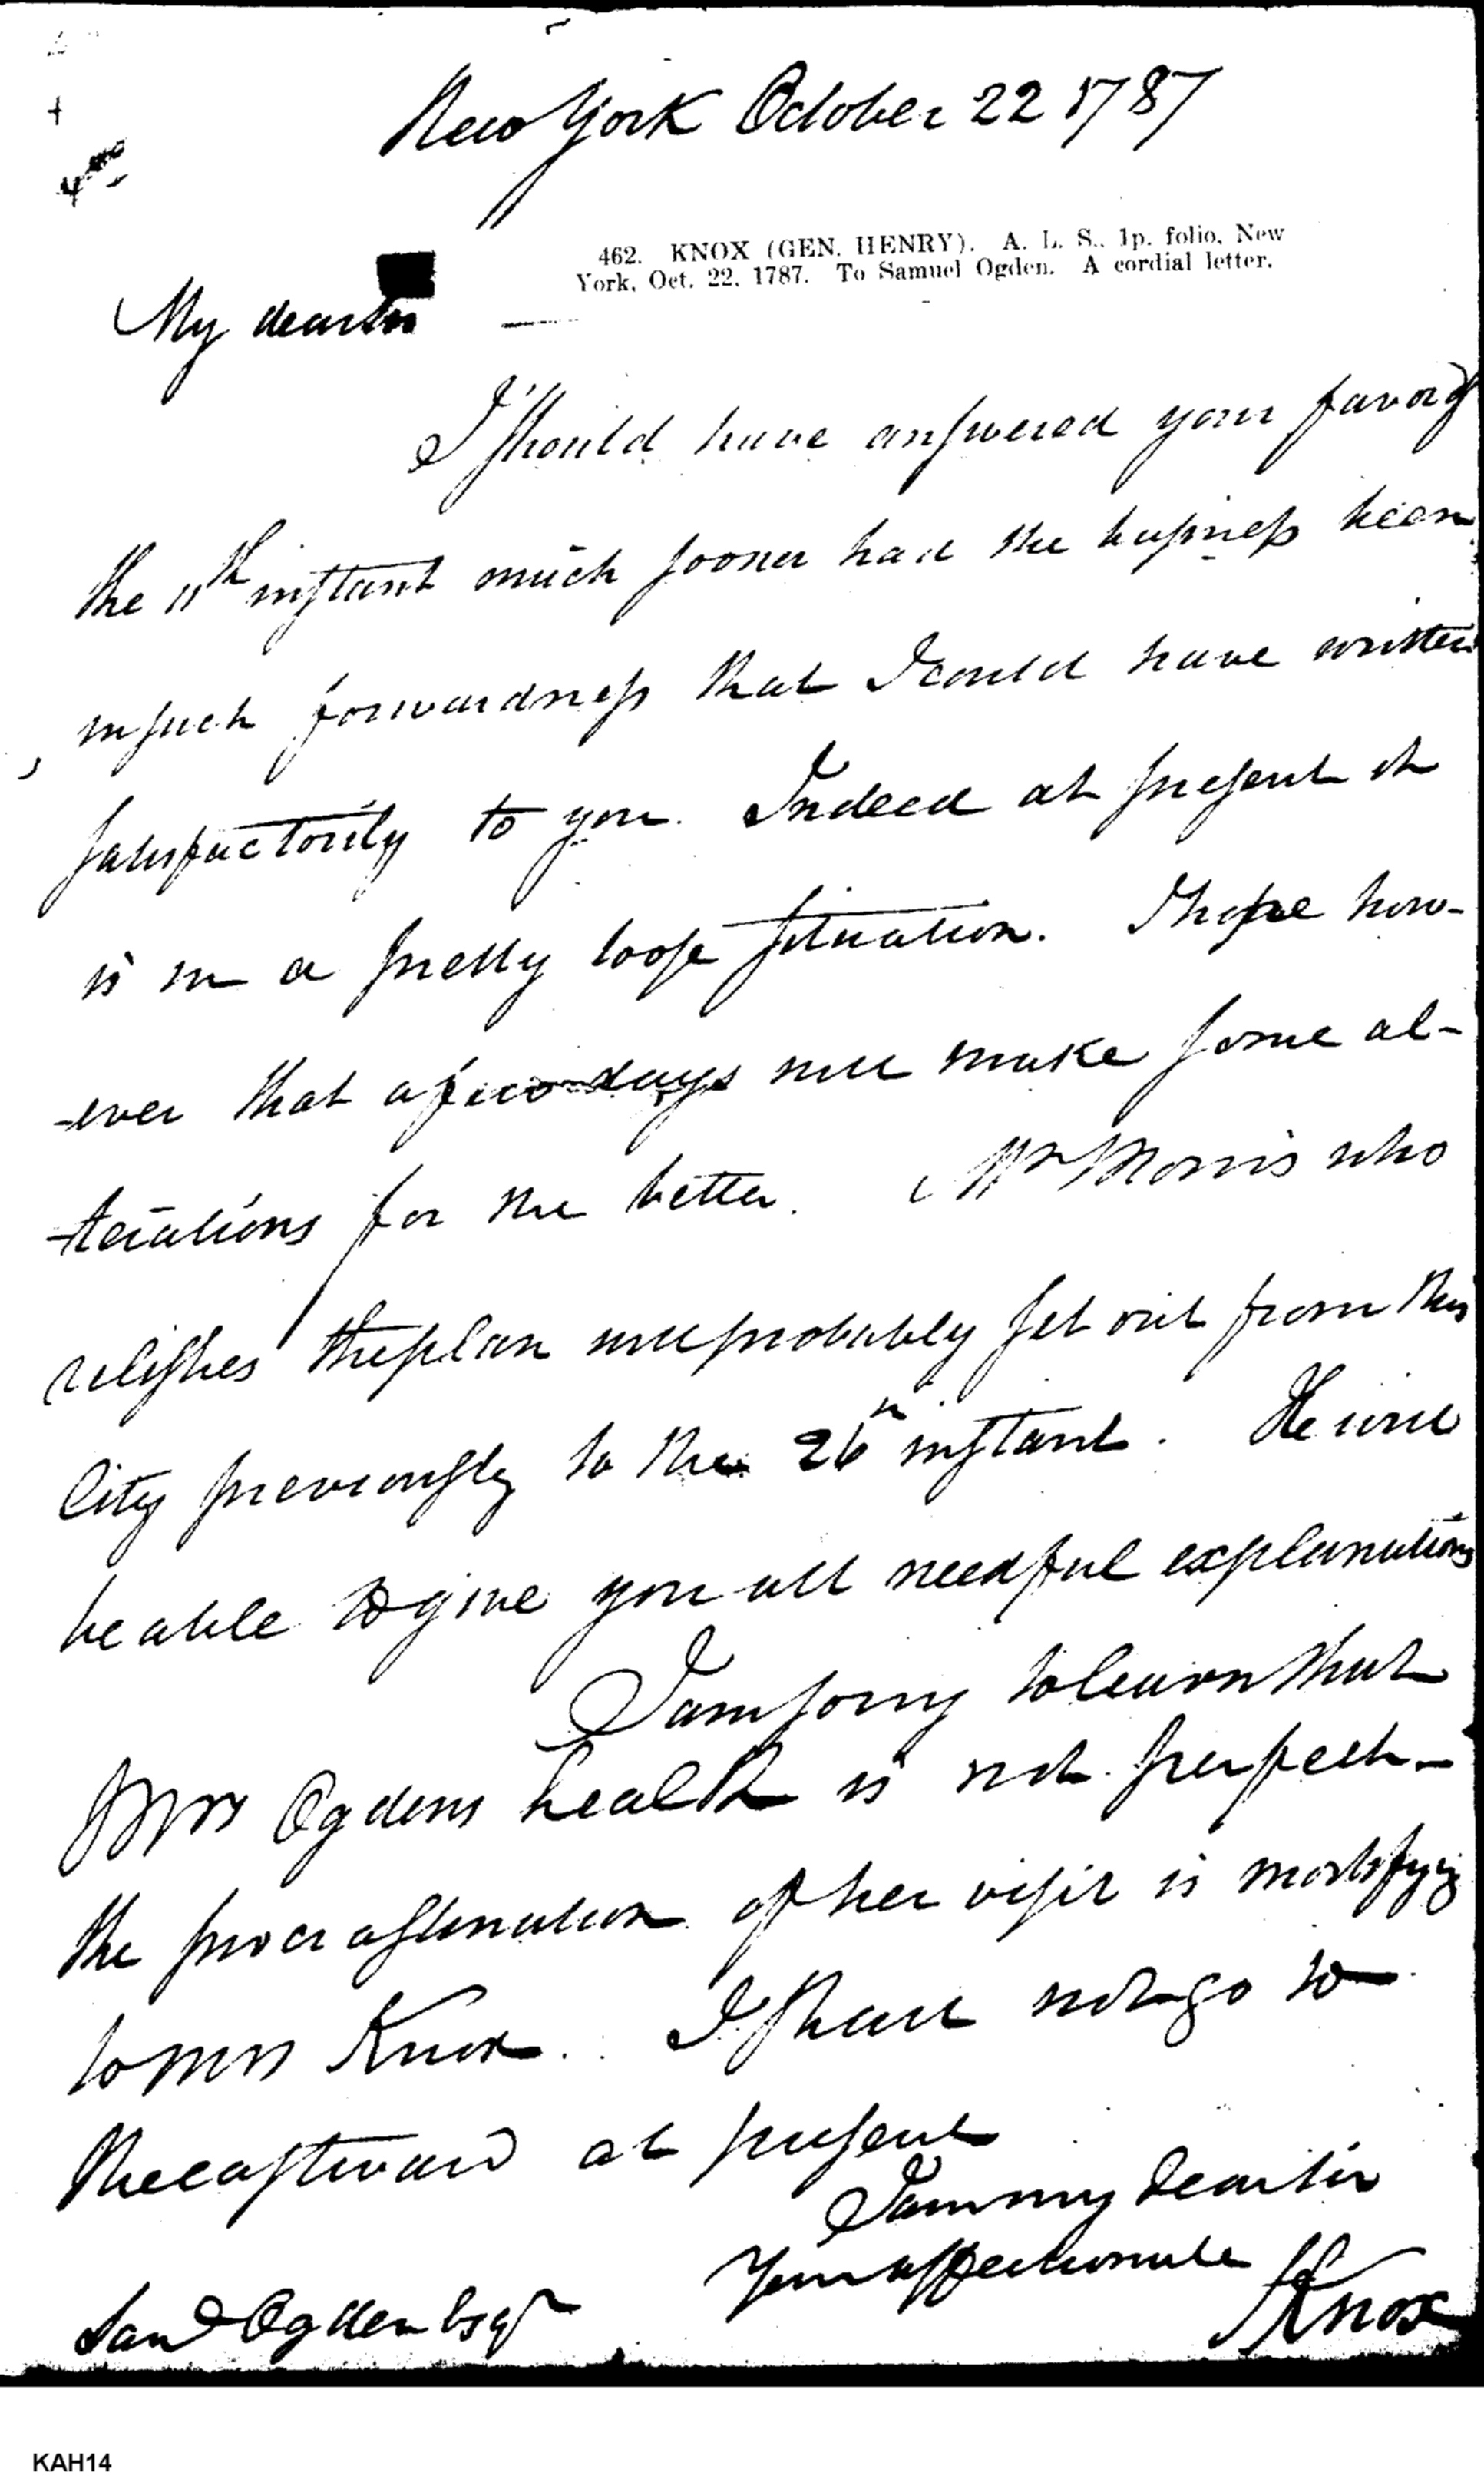 New York October 22 1787
462. KNOX (GEN. HENRY). A. L. S., 1p. folio, New
York, Oct. 22, 1787. To Samuel Ogden. A cordial letter.
My dear sir
I should have answered your favor of
the 11th instant much sooner had the business been
in such forwardness that I could have written
satisfactorily to you. Indeed at present it
is in a pretty loose situation. I hope how-
-ever that a few days will make some al-
-terations for the better. Mr Morris who
relishes the plan will probably set out from this
City previously to the 26th instant. He will
be able to give you all needful explanations
I am sorry to learn that
Mrs Ogdens health is not perfect—
the procrastination of her visit is mortifying
to Mrs Knox. I shall not go to
the eastward at present
I am my dear sir
Your affectionate
HKnox
Saml Ogden Esqr
KAH14